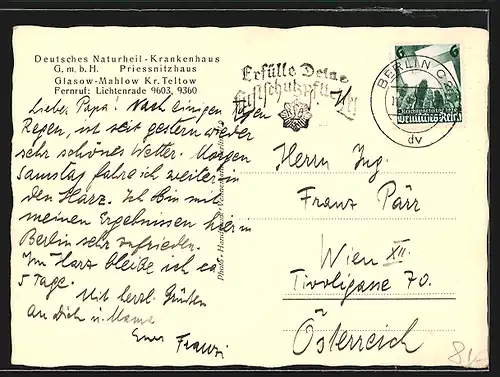 Deutsches Naturheil-Krankenhaus
G. m. b. H. Priessnitzhaus
Glasow-Mahlow Kr. Teltow
Fernruf: Lichtenrade 9603, 9360
Lieber Papa! Nach einigen Tagen
Regen, ist seit gestern wieder
sehr schönes Wetter. Morgen
Samstag fahre ich weiter in
den Harz. Ich bin mit
meinen Ergebnissen hier in
Berlin sehr zufrieden.
Im Harz bleibe ich ca
5 Tage.
Mit herzl. Grüßen
an Dich u. Mama
Euer Franzi
Erfülle Deine
Luftschutzpflicht
BERLIN C
dv
6 6
Deutsches Reich
Herrn Ing.
Franz Pärr
Wien XII.
Tivoligasse 70.
Österreich